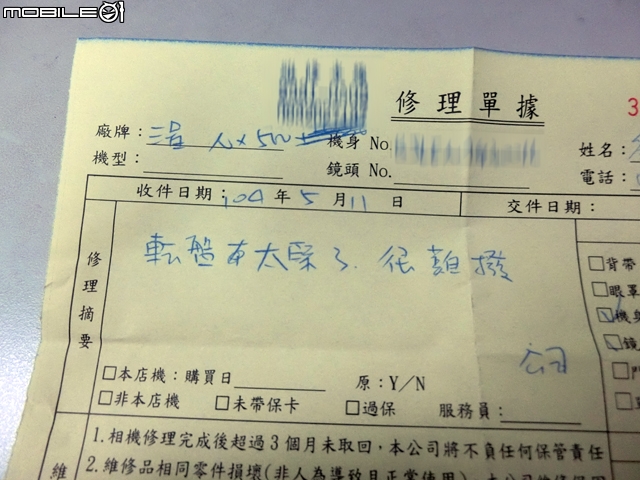 MOBILE01
修理單據
3
廠牌：三星 NX500 機身 No.
姓名：
機型： 鏡頭 No.
電話：
收件日期：104年5月11日 交件日期：
修理摘要
転盤車太緊了.很難撥
背帶
眼罩
機身
鏡
本店機：購買日 原：Y／N
非本店機 未帶保卡 過保 服務員：
1.相機修理完成後超過3個月未取回，本公司將不負任何保管責任
2.維修品相同零件損壞(非人為導致且正常使用)
維